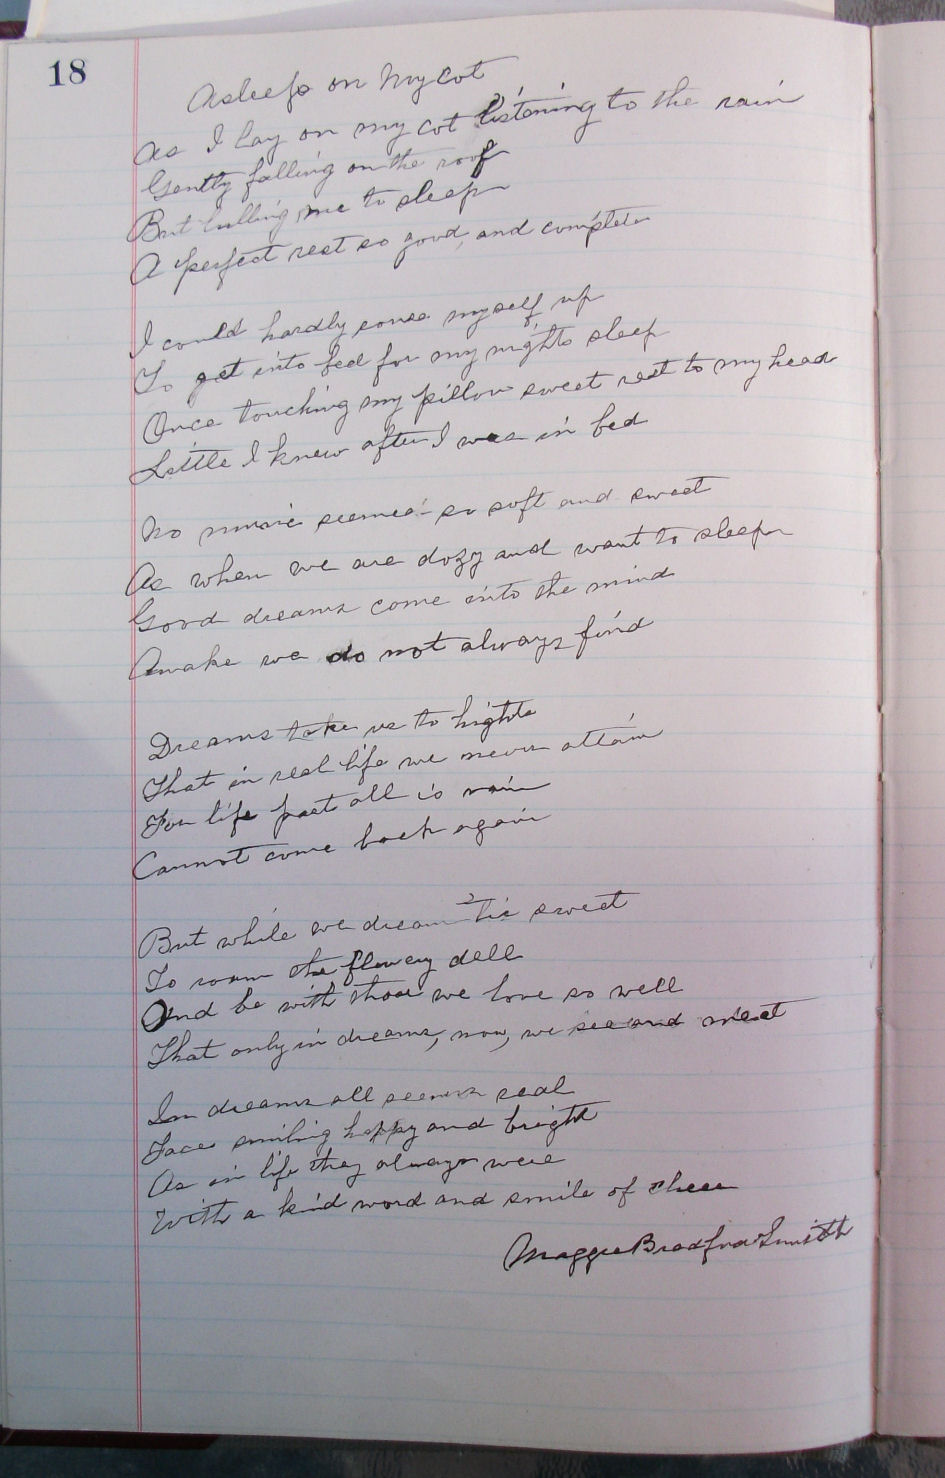 18
Asleep on My cot
As I lay on my cot listening to the rain
Gently falling on the roof
But lulling me to sleep
A perfect rest so good, and complete
I could hardly rouse myself up
To get into bed for my nights sleep
Once touching my pillow sweet rest to my head
Little I knew after I was in bed
No music seemed so soft and sweet
As when we are dozy and want to sleep
Good dreams come into the mind
Awake we do not always find
Dreams take us to hights
That in real life we never attain
For life past all is vain
Cannot come back again
But while we dream 'tis sweet
To roam the flowery dell
And be with those we love so well
That only in dreams, now, we see and meet
In dreams all seems real
Faces smiling happy and bright
As in life they always were
With a kind word and smile of cheer
Maggie Bradford Smith